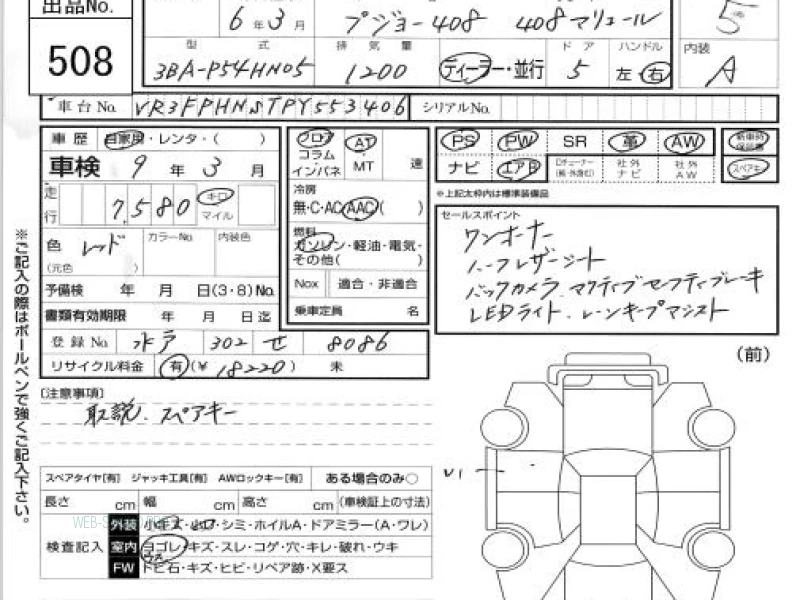 出品No.
508
6年3月 プジョー408 408アリュール 5
型式 排気量 ドア ハンドル 内装
3BA-P54HN05 1200 ディーラー・並行 5 左 右 A
車台No. VR3FPHNSTPY553406 シリアルNo.
車歴 自家用・レンタ・( )
車検 9年3月
走行 7,580 キロ マイル
色 レッド カラーNo. 内装色
(元色 )
予備検 年 月 日(3・8)No.
書類有効期限 年 月 日迄
登録No. 水戸 302 せ 8086
リサイクル料金 有(¥ 18220) 未
フロア コラム インパネ AT MT 速
冷房
無・C・AC AAC( )
燃料
ガソリン・軽油・電気・
その他( )
Nox 適合・非適合
乗車定員 名
PS PW SR 革 AW 新車時保証書
ナビ エアB 社外ナビ 社外AW スペアキー
※上記太枠内は標準装備品
セールスポイント
ワンオーナー
ハーフレザーシート
バックカメラ、アクティブセーフティブレーキ
LEDライト、レーンキープアシスト
(前)
〔注意事項〕
取説、スペアキー
スペアタイヤ[有] ジャッキ工具[有] AWロックキー[有] ある場合のみ○
長さ cm 幅 cm 高さ cm (車検証上の寸法)
検査記入
外装 小キズ・凹・シミ・ホイルA・ドアミラー(A・ワレ)
室内 ヨゴレ・キズ・スレ・コゲ・穴・キレ・破れ・ウキ
FW トビ石・キズ・ヒビ・リペア跡・X要ス
U1
※ご記入の際はボールペンで強くご記入下さい。